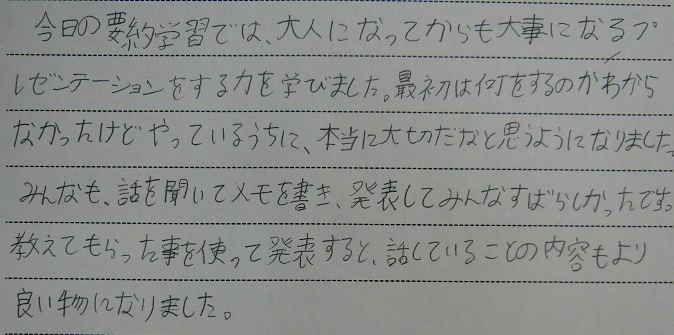 今日の要約学習では、大人になってからも大事になるプ
レゼンテーションをする力を学びました。最初は何をするのかわから
なかったけどやっているうちに、本当に大切だなと思うようになりました。
みんなも、話を聞いてメモを書き、発表してみんなすばらしかったです。
教えてもらった事を使って発表すると、話していることの内容もより
良い物になりました。